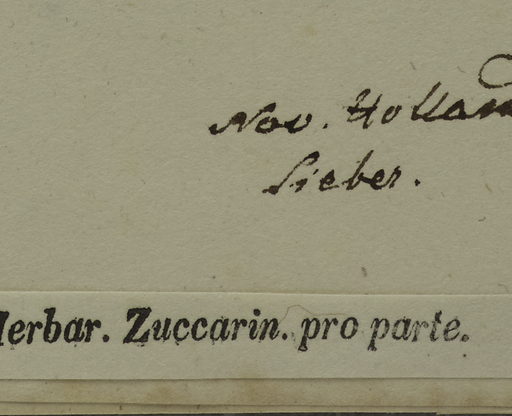 Nov. Hollan
Sieber.
Herbar. Zuccarin. pro parte.